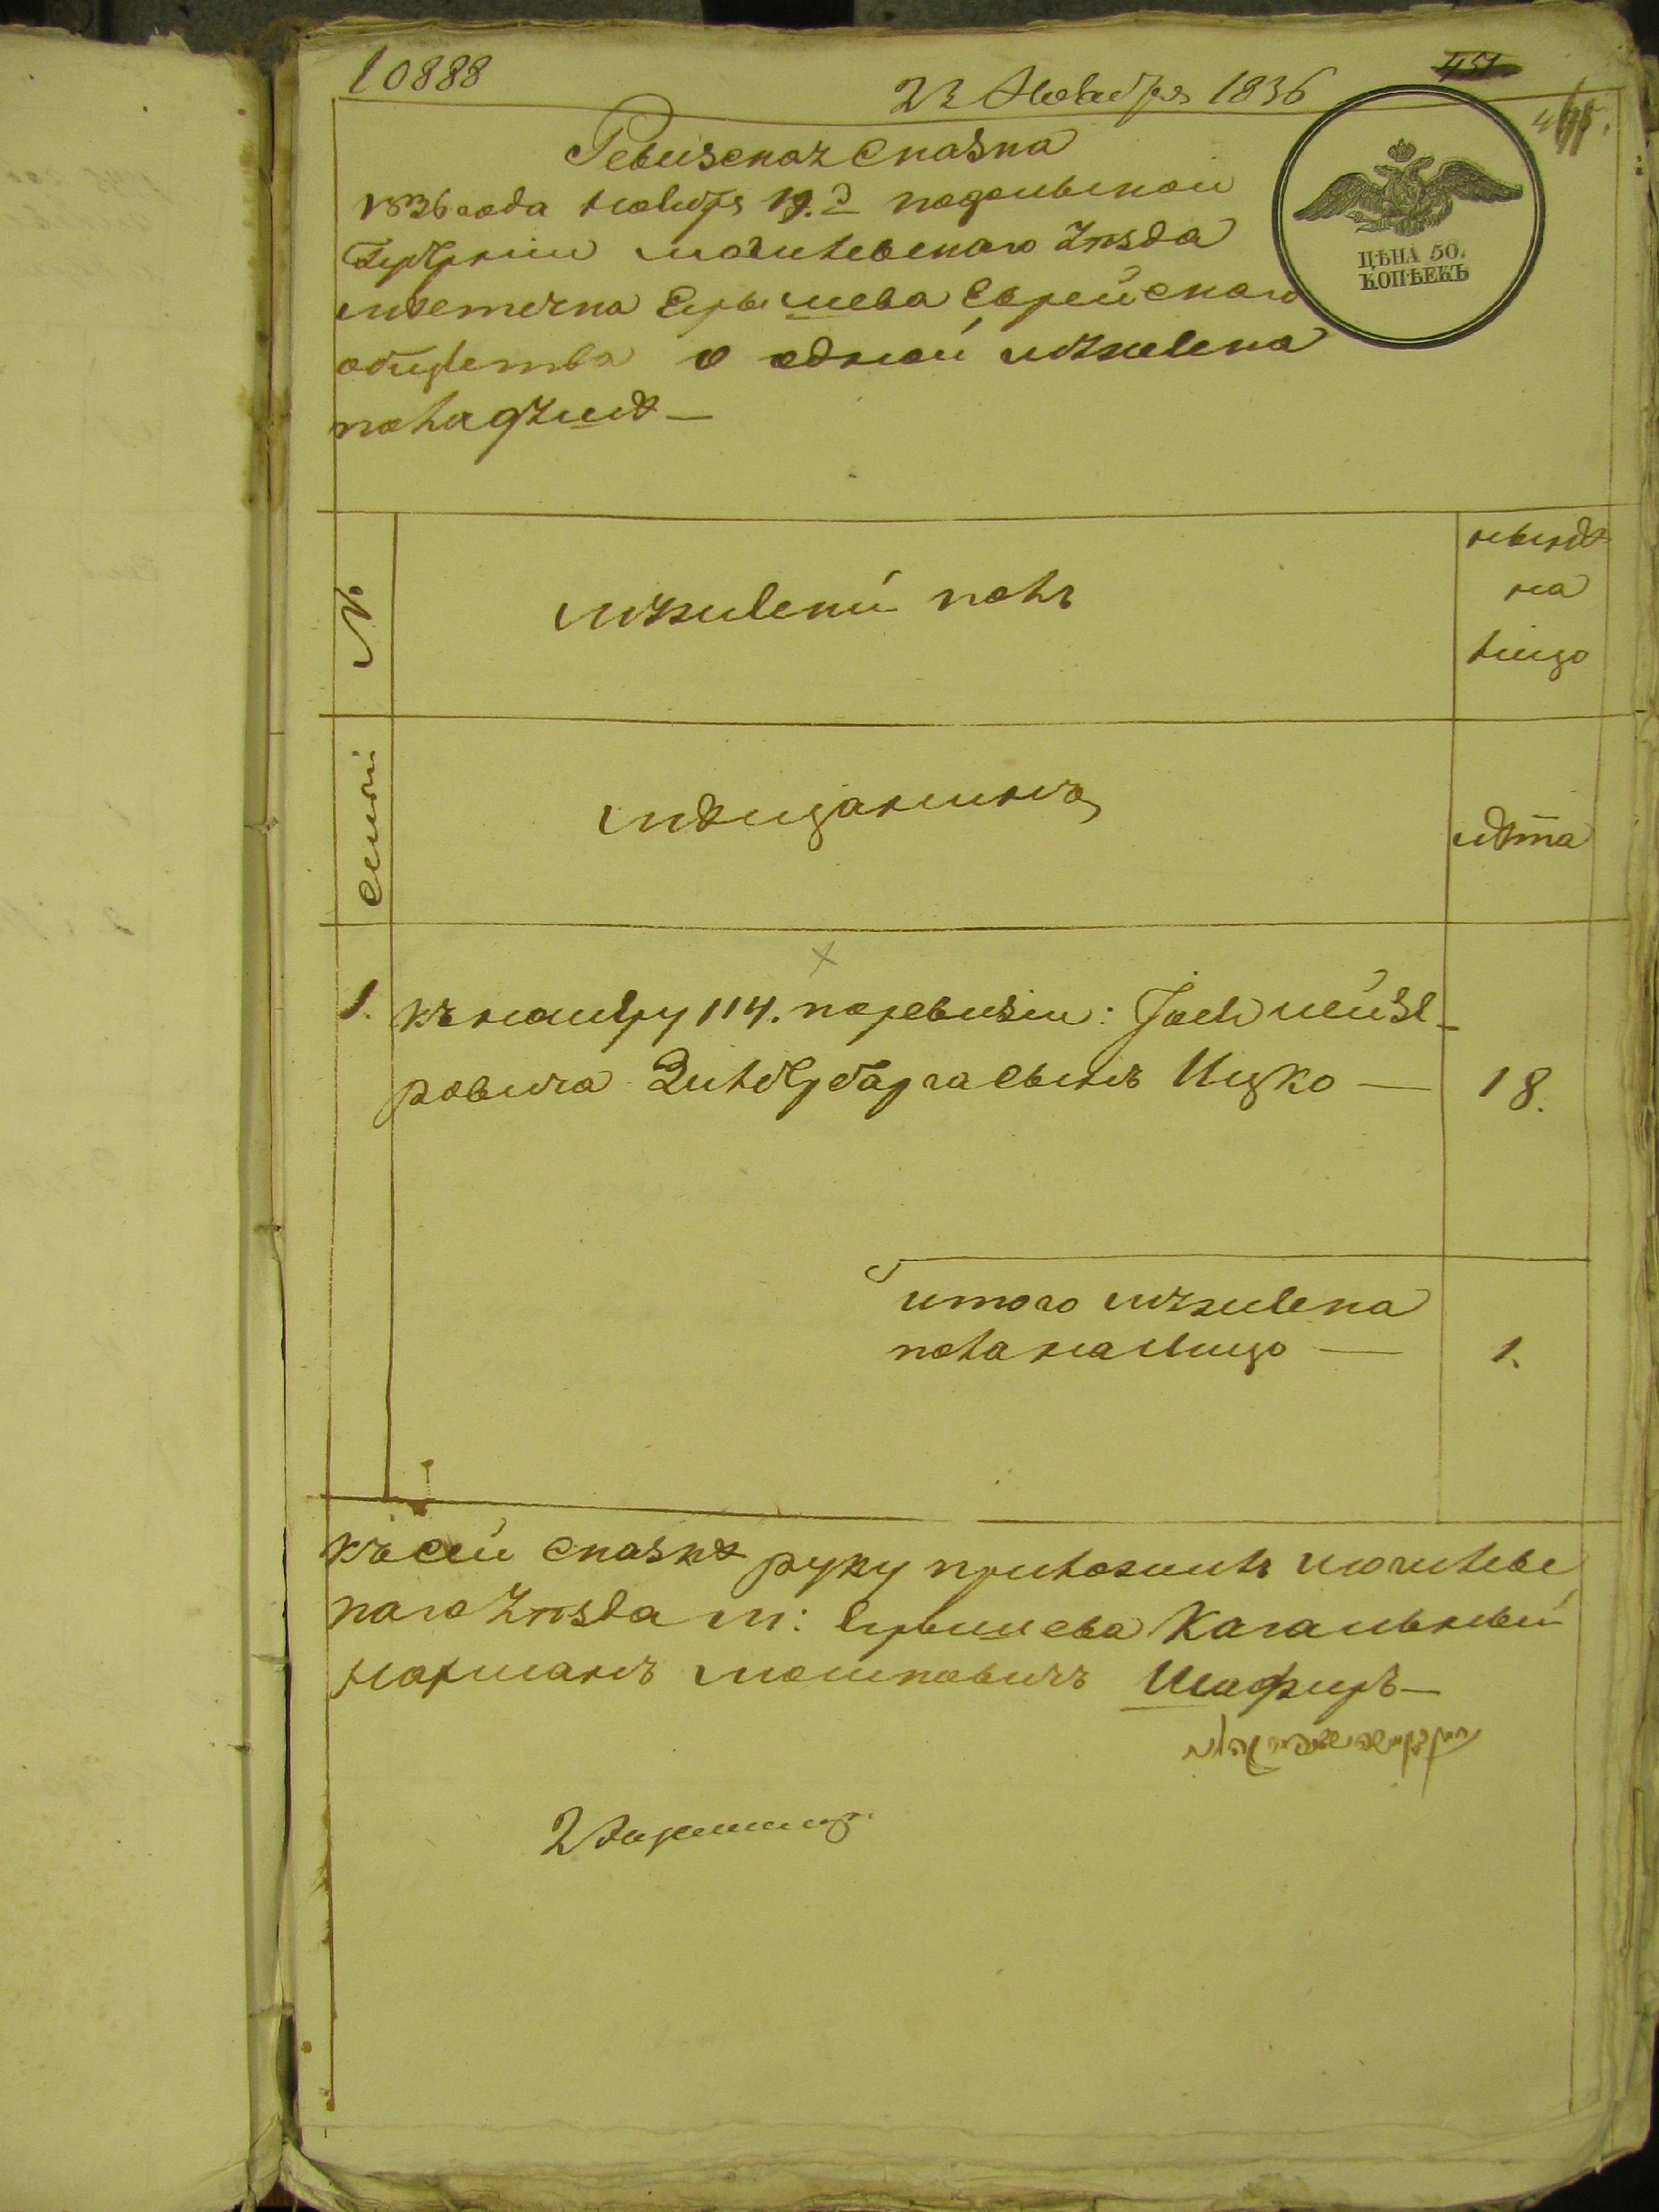 10888
23 Ноября 1836
451
Ревизская Сказка
1836 года ноября 19.г Подольской
Губернии Могилевскаго уѣзда
мѣстечка Ярышева Еврейскаго
общества о одной мужеска
пола душѣ —
ЦѢНА 50.
КОПѢЕКЪ
№
мужеский полъ
нынѣ
на
лицо
Семьи
мѣщанинъ
лѣта
1. къ номеру 114. по ревизіи: Іось Лейзе-
ровича Зильбербарга сынъ Ицко — 18.
итого мужеска
пола на лицо — 1.
къ сей сказкѣ руку приложилъ Могилевс
каго уѣзда м: Ярышева Кагальный
Нахманъ Мошковичъ Шафиръ —